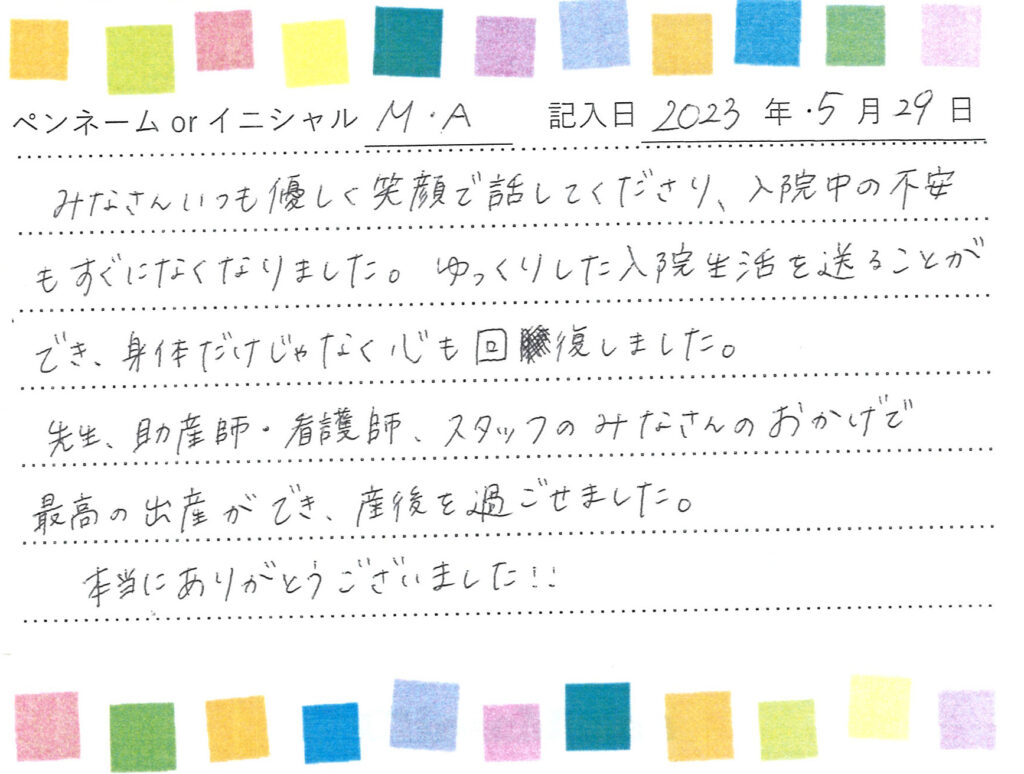 ペンネーム or イニシャル M・A 記入日 2023 年・5 月 29 日
みなさんいつも優しく笑顔で話してくださり、入院中の不安
もすぐになくなりました。ゆっくりした入院生活を送ることが
でき、身体だけじゃなく心も回復しました。
先生、助産師・看護師、スタッフのみなさんのおかげで
最高の出産ができ、産後を過ごせました。
本当にありがとうございました!!